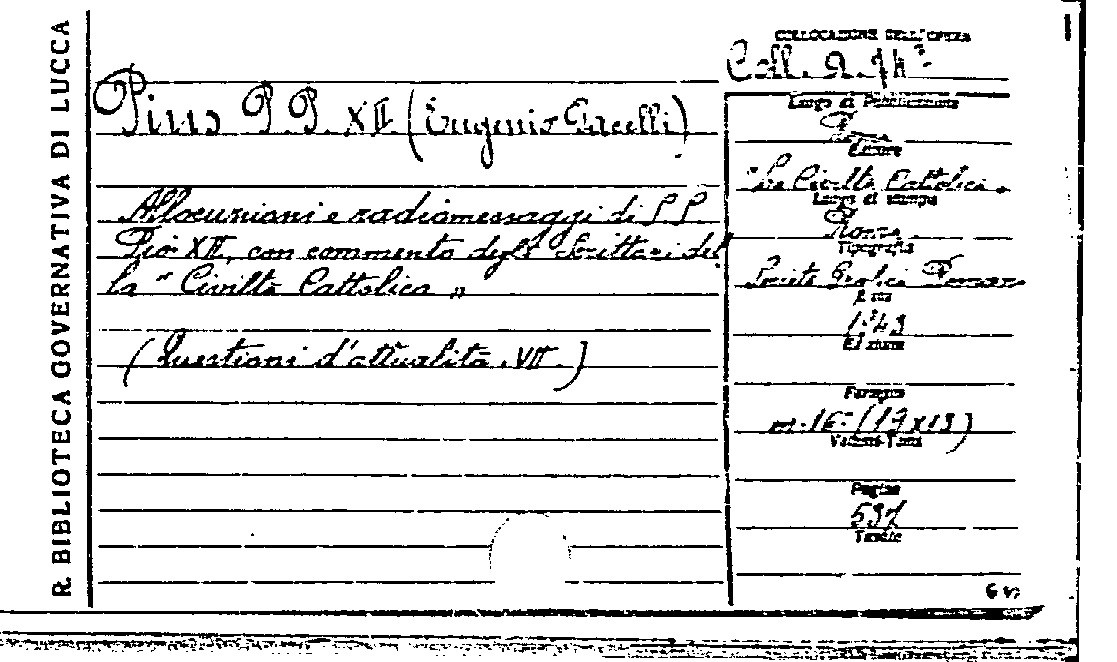 R. BIBLIOTECA GOVERNATIVA DI LUCCA
Pius P.P. XII (Eugenio Pacelli)
Allocuzioni e radiomessaggi di P.P.
Pio XII, con commento degli Scrittori del
la "Civiltà Cattolica"
(Questioni d'attualità. VII.)
COLLOCAZIONE DELL'OPERA
Coll. a.
Luogo di Pubblicazione
Roma
Editore
"La Civiltà Cattolica"
Luogo di stampa
Roma
Tipografia
Società Grafica Romana
Anno
1943
Edizione
Formato
in-16° (19x13)
Volumi-Tomi
Pagine
537
Tavole